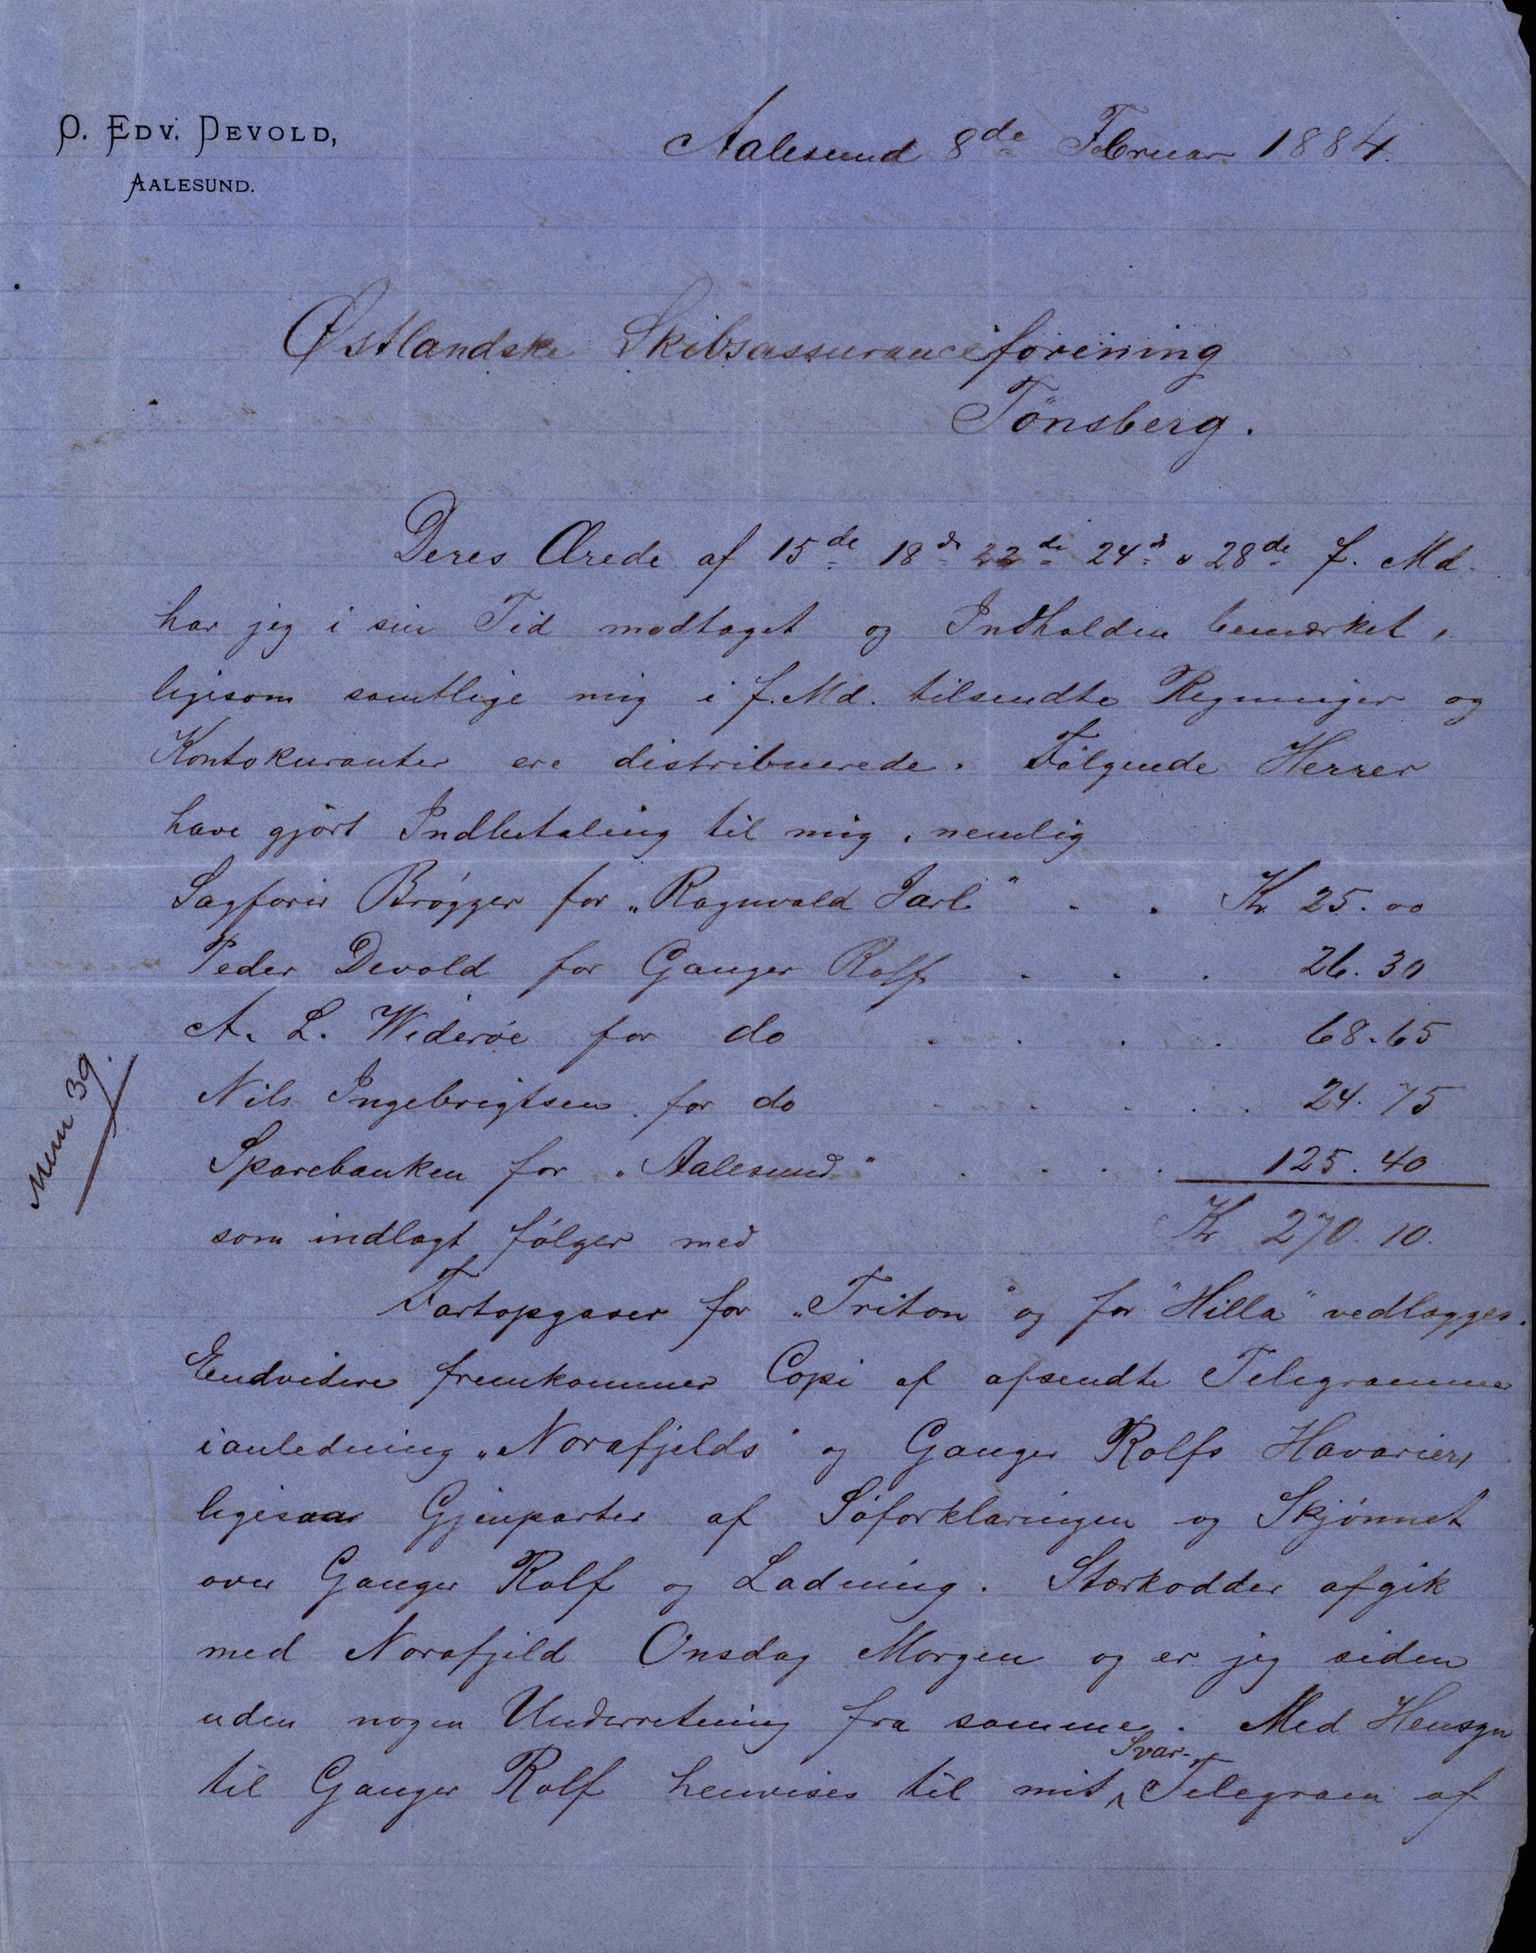 O. EDV. DEVOLD,
AALESUND.
Aalesund 8de Februar 1884.
Østlandske Skibsassuranceforening
Tönsberg.
Deres Ærede af 15de 18d 22de 24d o 28de f. Md.
har jeg i sin Tid modtaget og Indholden bemærket,
ligesom samtlige mig i f. Md. tilsendte Regninger og
Kontokuranter ere distribuerede. Fölgende Herrer
have gjört Indbetaling til mig, nemlig
Sagförer Brøgger for „Ragnvald Jarl" . . Kr 25.00
Peder Devold for Ganger Rolf . . . 26.30
A. L. Wideröe for do . . . . 68.65
Nils Ingebrigtsen for do . . . . . 24.75
Sparebanken for „Aalesund" . . . . 125.40
som indlagt fölger med Kr 270.10.
Mem 39.
Fartopgaver for „Triton" og for "Hilla" vedlægges.
Endvidere fremkommer Copi af afsendte Telegrammer
ianledning „Norafjelds" og Ganger Rolfs Havarier,
ligesaa Gjenparter af Söforklaringen og Skjönnet
over Ganger Rolf og Ladning. Stærkodder afgik
med Norafjeld Onsdag Morgen og er jeg siden
uden nogen Underretning fra samme. Med Hensyn
til Ganger Rolf henvises til mit Svar-Telegram af